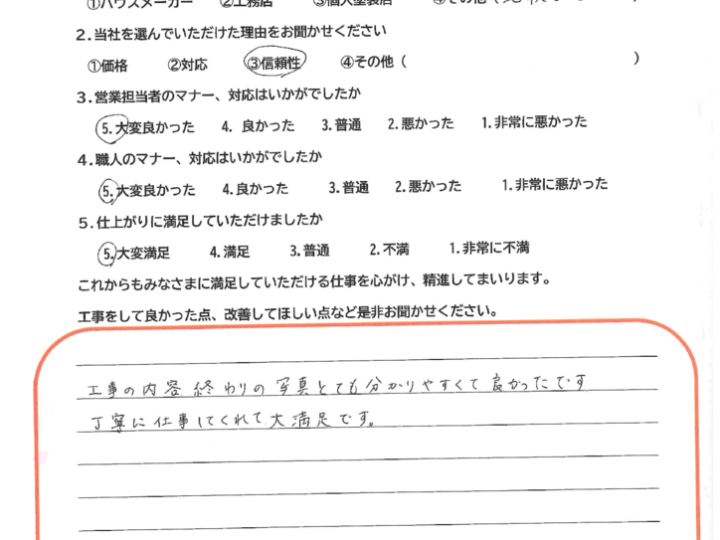 ①ハウスメーカー ②工務店 ③個人塗装店 ④その他（
2.当社を選んでいただけた理由をお聞かせください
①価格 ②対応 ③信頼性 ④その他（ ）
3.営業担当者のマナー、対応はいかがでしたか
5.大変良かった 4. 良かった 3.普通 2.悪かった 1.非常に悪かった
4.職人のマナー、対応はいかがでしたか
5.大変良かった 4.良かった 3.普通 2.悪かった 1.非常に悪かった
5.仕上がりに満足していただけましたか
5.大変満足 4.満足 3.普通 2.不満 1.非常に不満
これからもみなさまに満足していただける仕事を心がけ、精進してまいります。
工事をして良かった点、改善してほしい点など是非お聞かせください。
工事の内容 終わりの写真とても分かりやすくて良かったです
丁寧に仕事してくれて大満足です。